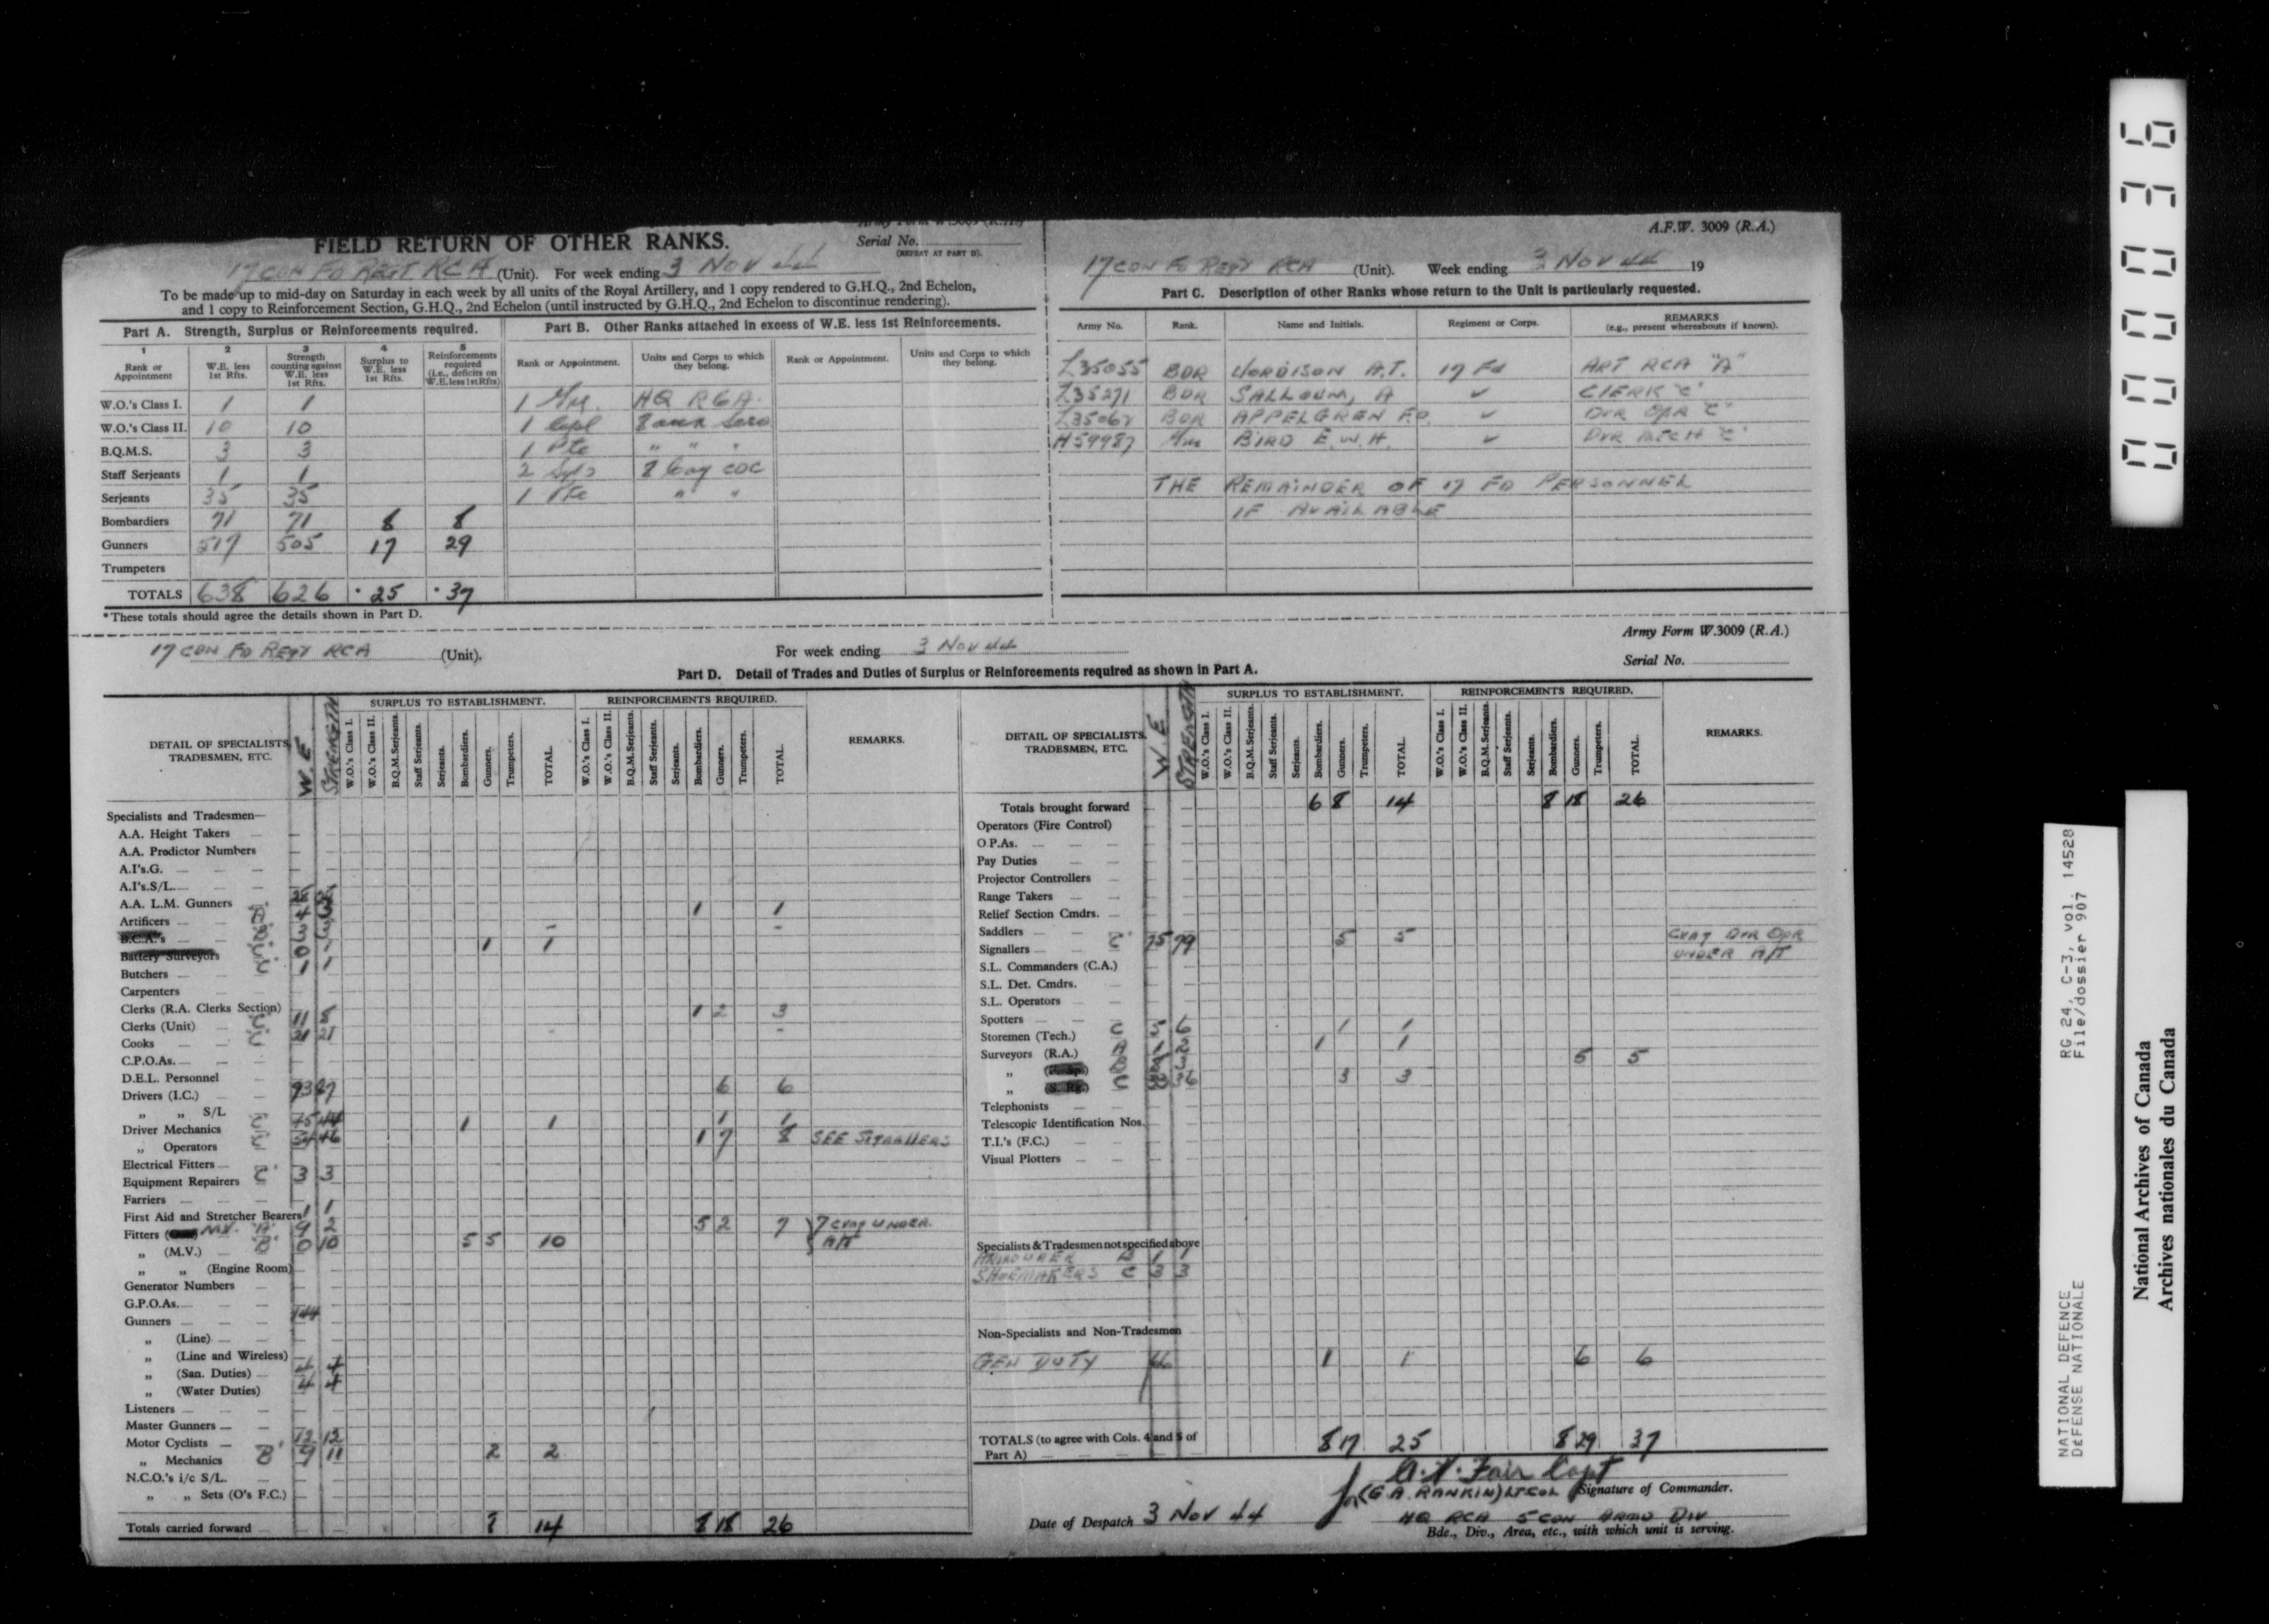 FIELD RETURN OF OTHER RANKS.
Serial No.
(REPEAT AT PART D).
17 CDN FD REGT RCA (Unit). For week ending 3 NOV 44
To be made up to mid-day on Saturday in each week by all units of the Royal Artillery, and 1 copy rendered to G.H.Q., 2nd Echelon,
and 1 copy to Reinforcement Section, G.H.Q., 2nd Echelon (until instructed by G.H.Q., 2nd Echelon to discontinue rendering).
Part A. Strength, Surplus or Reinforcements required.
1 Rank or Appointment
2 W.E. less 1st Rfts.
3 Strength counting against W.E. less 1st Rfts.
4 Surplus to W.E. less 1st Rfts.
5 Reinforcements required (i.e., deficits on W.E. less 1st Rfts)
W.O.'s Class I. 1 1
W.O.'s Class II. 10 10
B.Q.M.S. 3 3
Staff Serjeants 1 1
Serjeants 35 35
Bombardiers 71 71 8 8
Gunners 517 505 17 29
Trumpeters
TOTALS 638 626 * 25 * 37
*These totals should agree the details shown in Part D.
Part B. Other Ranks attached in excess of W.E. less 1st Reinforcements.
Rank or Appointment. Units and Corps to which they belong. Rank or Appointment. Units and Corps to which they belong.
1 HQ RCA
1 Cpl
1 Pte " " "
2
1 Pte " "
A.F.W. 3009 (R.A.)
17 CDN FD REGT RCA (Unit). Week ending 3 NOV 44 19
Part C. Description of other Ranks whose return to the Unit is particularly requested.
Army No. Rank. Name and Initials. Regiment or Corps. REMARKS (e.g., present whereabouts if known).
L35055 BDR HORDISON A.T. 17 Fd ART RCA "A"
L35271 BDR SALLOUM, A ✓ CLERK "C"
BDR APPELGREN F.O. ✓ DVR OPR "C"
H59987 BIRD E.W.H. ✓ DVR MECH "C"
THE REMAINDER OF 17 FD PERSONNEL
IF AVAILABLE
Army Form W.3009 (R.A.)
17 CDN FD REGT RCA (Unit). For week ending 3 NOV 44
Serial No.
Part D. Detail of Trades and Duties of Surplus or Reinforcements required as shown in Part A.
DETAIL OF SPECIALISTS, TRADESMEN, ETC.
W.E
STRENGTH
SURPLUS TO ESTABLISHMENT.
W.O.'s Class I. W.O.'s Class II. B.Q.M.Serjeants. Staff Serjeants. Serjeants. Bombardiers. Gunners. Trumpeters. TOTAL.
REINFORCEMENTS REQUIRED.
W.O.'s Class I. W.O.'s Class II. B.Q.M.Serjeants. Staff Serjeants. Serjeants. Bombardiers. Gunners. Trumpeters. TOTAL.
REMARKS.
Specialists and Tradesmen—
A.A. Height Takers
A.A. Predictor Numbers
A.I's.G.
A.I's.S/L.
A.A. L.M. Gunners 1 1
Artificers
B.C.A.'s 1 1
Battery Surveyors
Butchers
Carpenters
Clerks (R.A. Clerks Section)
Clerks (Unit) C 11 8 1 2 3
Cooks C 21 21
C.P.O.As.
D.E.L. Personnel
Drivers (I.C.) 93 87 6 6
„ „ S/L
Driver Mechanics C 45 44 1 1 1 1
„ Operators C 54 46 1 7 8 SEE SIGNALLERS
Electrical Fitters
Equipment Repairers C 3 3
Farriers
First Aid and Stretcher Bearers 1 1
Fitters MV. "A" 9 2 5 2 7 7 UNDER
„ (M.V.) "B" 0 10 5 5 10 A/T
„ „ (Engine Room)
Generator Numbers
G.P.O.As.
Gunners 144
„ (Line)
„ (Line and Wireless)
„ (San. Duties) 4 4
„ (Water Duties) 4 4
Listeners
Master Gunners
Motor Cyclists 12 12
„ Mechanics B 9 11 2 2
N.C.O.'s i/c S/L.
„ „ Sets (O's F.C.)
Totals carried forward 8 14 8 18 26
DETAIL OF SPECIALISTS, TRADESMEN, ETC.
W.E
STRENGTH
SURPLUS TO ESTABLISHMENT.
W.O.'s Class I. W.O.'s Class II. B.Q.M.Serjeants. Staff Serjeants. Serjeants. Bombardiers. Gunners. Trumpeters. TOTAL.
REINFORCEMENTS REQUIRED.
W.O.'s Class I. W.O.'s Class II. B.Q.M.Serjeants. Staff Serjeants. Serjeants. Bombardiers. Gunners. Trumpeters. TOTAL.
REMARKS.
Totals brought forward 6 8 14 8 18 26
Operators (Fire Control)
O.P.As.
Pay Duties
Projector Controllers
Range Takers
Relief Section Cmdrs.
Saddlers
Signallers C 75 79 5 5 DVR OPR
UNDER A/T
S.L. Commanders (C.A.)
S.L. Det. Cmdrs.
S.L. Operators
Spotters
Storemen (Tech.) C 5 6 1 1
Surveyors (R.A.) A 1 2 1 1
„ B 5 5
„ C 3 3
Telephonists
Telescopic Identification Nos.
T.I.'s (F.C.)
Visual Plotters
Specialists & Tradesmen not specified above
ARMOURER B 1 1
SHOEMAKERS C 3 3
Non-Specialists and Non-Tradesmen
GEN DUTY 1 1 6 6
TOTALS (to agree with Cols. 4 and 5 of
Part A) 8 17 25 8 29 37
Fair Capt
for (G A RANKIN) LT COL Signature of Commander.
Date of Despatch 3 NOV 44
HQ RCA 5 CDN ARMD DIV
Bde., Div., Area, etc., with which unit is serving.
000036
NATIONAL DEFENCE RG 24, C-3, vol. 14528
DEFENSE NATIONALE File/dossier 907
National Archives of Canada
Archives nationales du Canada